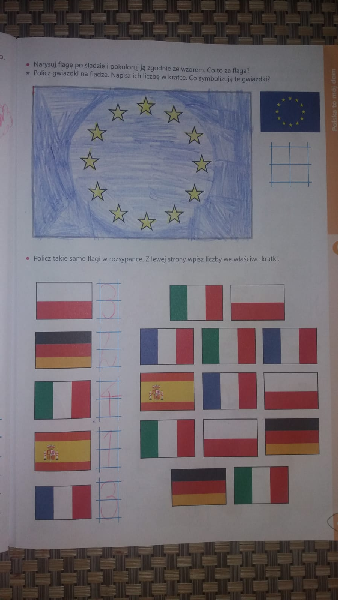 • Narysuj flagę po śladzie i pokoloruj ją zgodnie ze wzorem. Co to za flaga?
• Policz gwiazdki na fladze. Napisz ich liczbę w kratce. Co symbolizują te gwiazdki?
• Policz takie same flagi w rozsypance. Z lewej strony wpisz liczby we właściwe kratki.
3
2
4
1
3